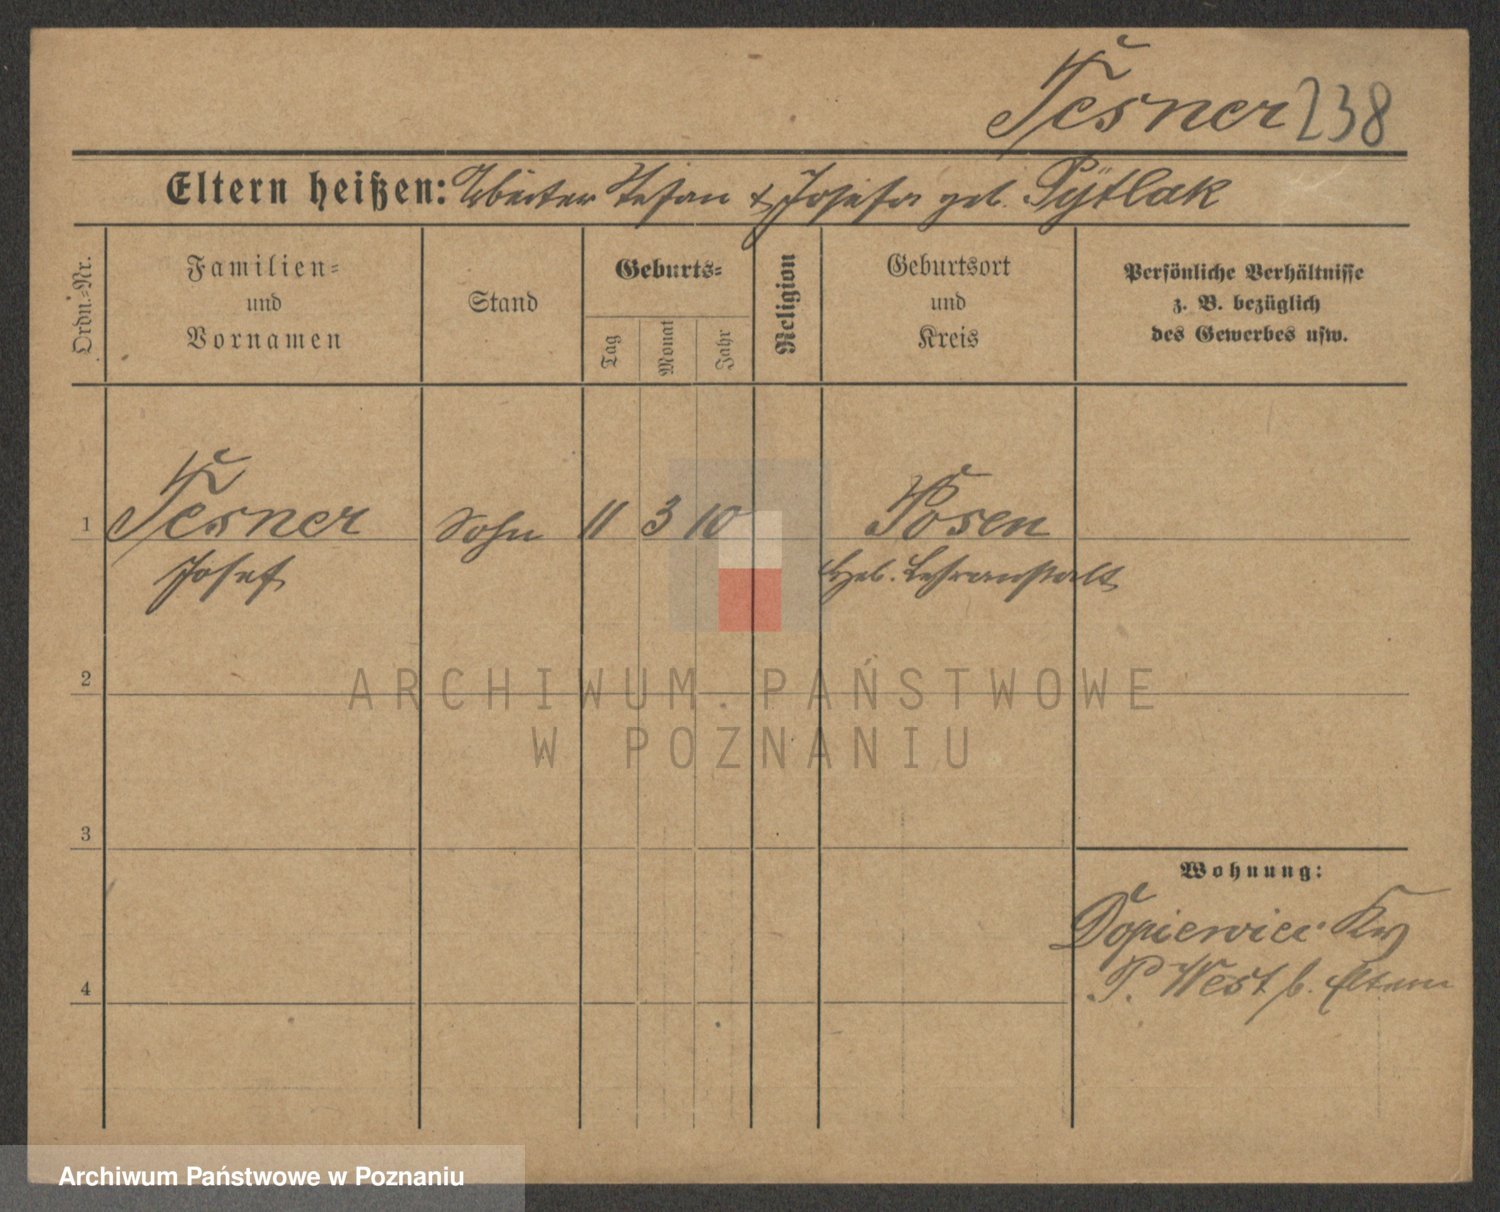 Tesner 238
Eltern heißen: Arbeiter Stefan & Josefa geb. Pytlak
Ordn.-Nr.
Familien-
und
Vornamen
Stand
Geburts-
Tag
Monat
Jahr
Religion
Geburtsort
und
Kreis
Persönliche Verhältnisse
z. B. bezüglich
des Gewerbes usw.
1 Tesner Sohn 11 3 10 Posen
Josef Heb. Lehranstalt
2
ARCHIWUM PAŃSTWOWE
W POZNANIU
3
Wohnung:
Dopiewiec Kr
4 P. West b. Eltern
Archiwum Państwowe w Poznaniu